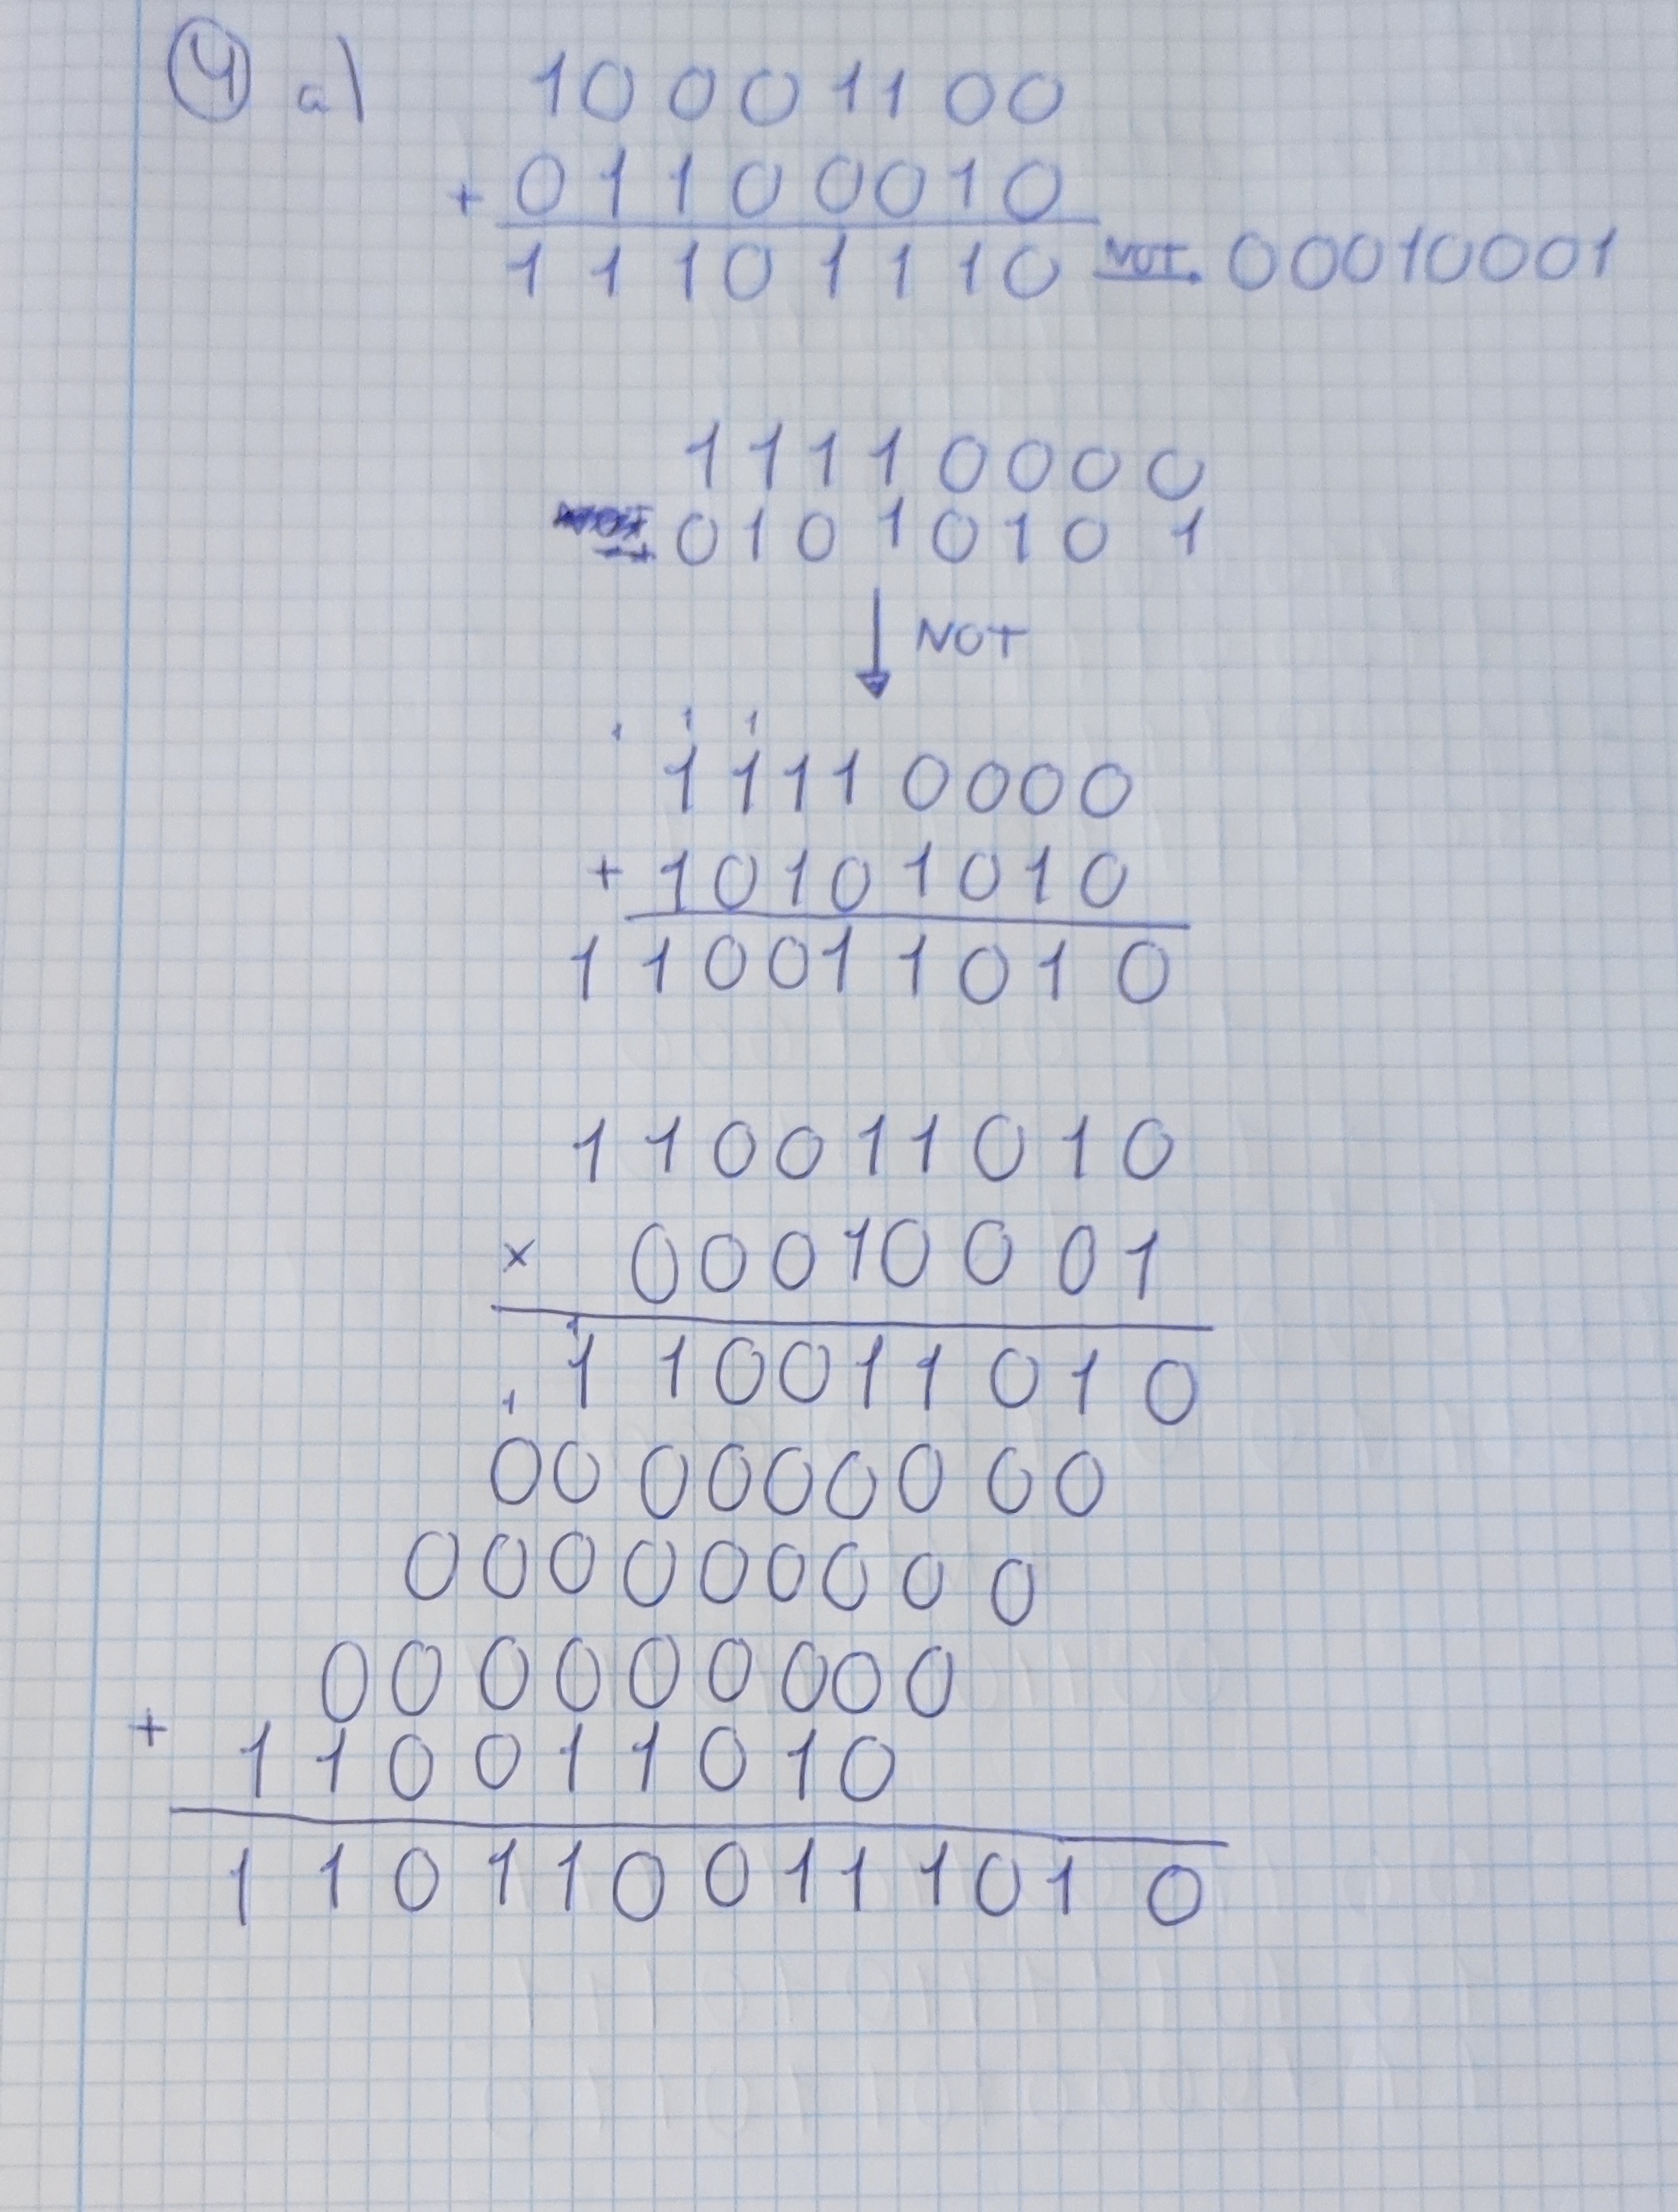 4 a) 10001100
+ 01100010
11101110 NOT 00010001
11110000
01010101
NOT
1 1 1
11110000
+ 10101010
110011010
110011010
x 00010001
1
1 110011010
000000000
000000000
000000000
+ 110011010
1101100111010